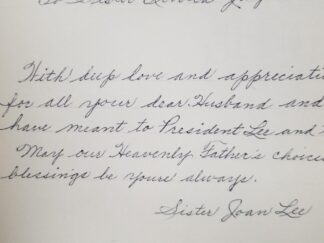 To Sister
With deep love and appreciati
for all your dear Husband and
have meant to President Lee and
May our Heavenly Father's choices
blessings be yours always.
Sister Joan Lee